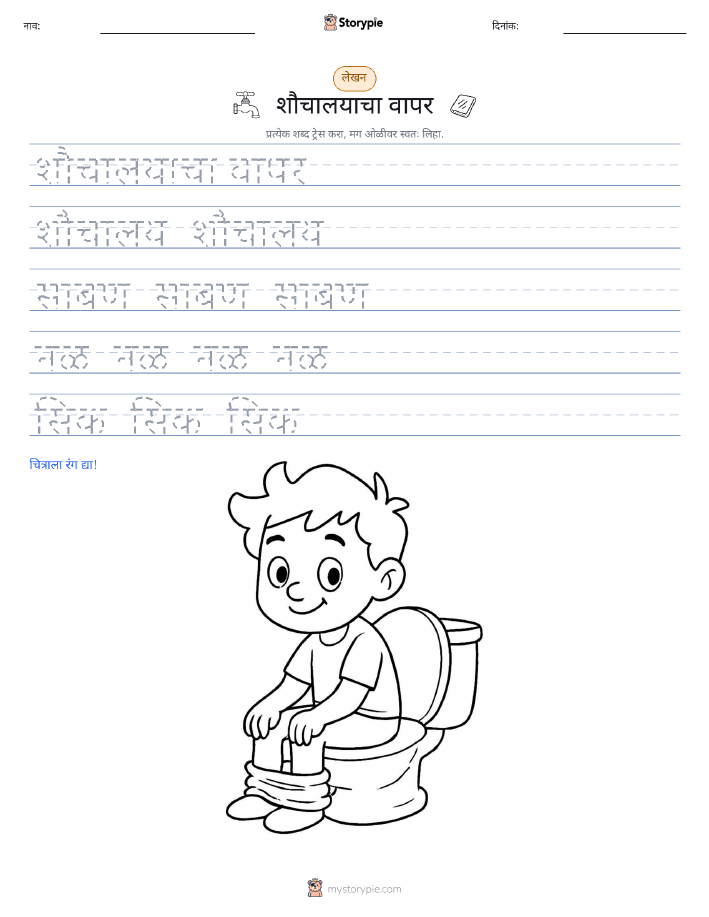 नाव:
Storypie
दिनांक:
लेखन
शौचालयाचा वापर
प्रत्येक शब्द ट्रेस करा, मग ओळीवर स्वतः लिहा.
शौचालयाचा वापर
शौचालय शौचालय
साबण साबण साबण
नळ नळ नळ नळ
सिंक सिंक सिंक
चित्राला रंग द्या!
mystorypie.com